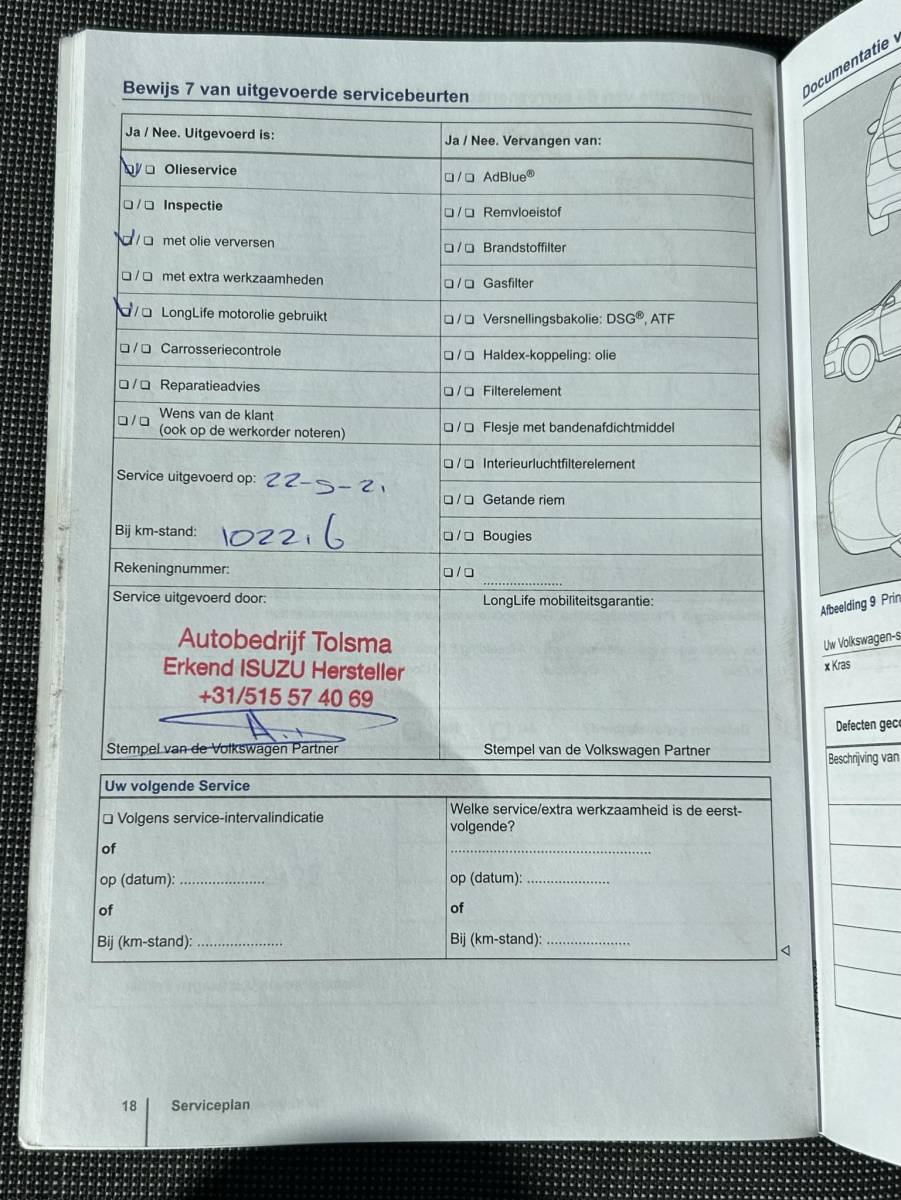 Bewijs 7 van uitgevoerde servicebeurten
Ja / Nee. Uitgevoerd is:
❏ / ❏ Olieservice
❏ / ❏ Inspectie
❏ / ❏ met olie verversen
❏ / ❏ met extra werkzaamheden
❏ / ❏ LongLife motorolie gebruikt
❏ / ❏ Carrosseriecontrole
❏ / ❏ Reparatieadvies
❏ / ❏ Wens van de klant
(ook op de werkorder noteren)
Service uitgevoerd op: 22-5-21
Bij km-stand: 102216
Rekeningnummer:
Service uitgevoerd door:
Autobedrijf Tolsma
Erkend ISUZU Hersteller
+31/515 57 40 69
Stempel van de Volkswagen Partner
Ja / Nee. Vervangen van:
❏ / ❏ AdBlue®
❏ / ❏ Remvloeistof
❏ / ❏ Brandstoffilter
❏ / ❏ Gasfilter
❏ / ❏ Versnellingsbakolie: DSG®, ATF
❏ / ❏ Haldex-koppeling: olie
❏ / ❏ Filterelement
❏ / ❏ Flesje met bandenafdichtmiddel
❏ / ❏ Interieurluchtfilterelement
❏ / ❏ Getande riem
❏ / ❏ Bougies
❏ / ❏ ......................
LongLife mobiliteitsgarantie:
Stempel van de Volkswagen Partner
Uw volgende Service
❏ Volgens service-intervalindicatie
of
op (datum): ......................
of
Bij (km-stand): ......................
Welke service/extra werkzaamheid is de eerst-
volgende?
......................................................
op (datum): ......................
of
Bij (km-stand): ......................
18 Serviceplan
Documentatie
Afbeelding 9
Uw Volkswagen-
x Kras
Defecten
Beschrijving van